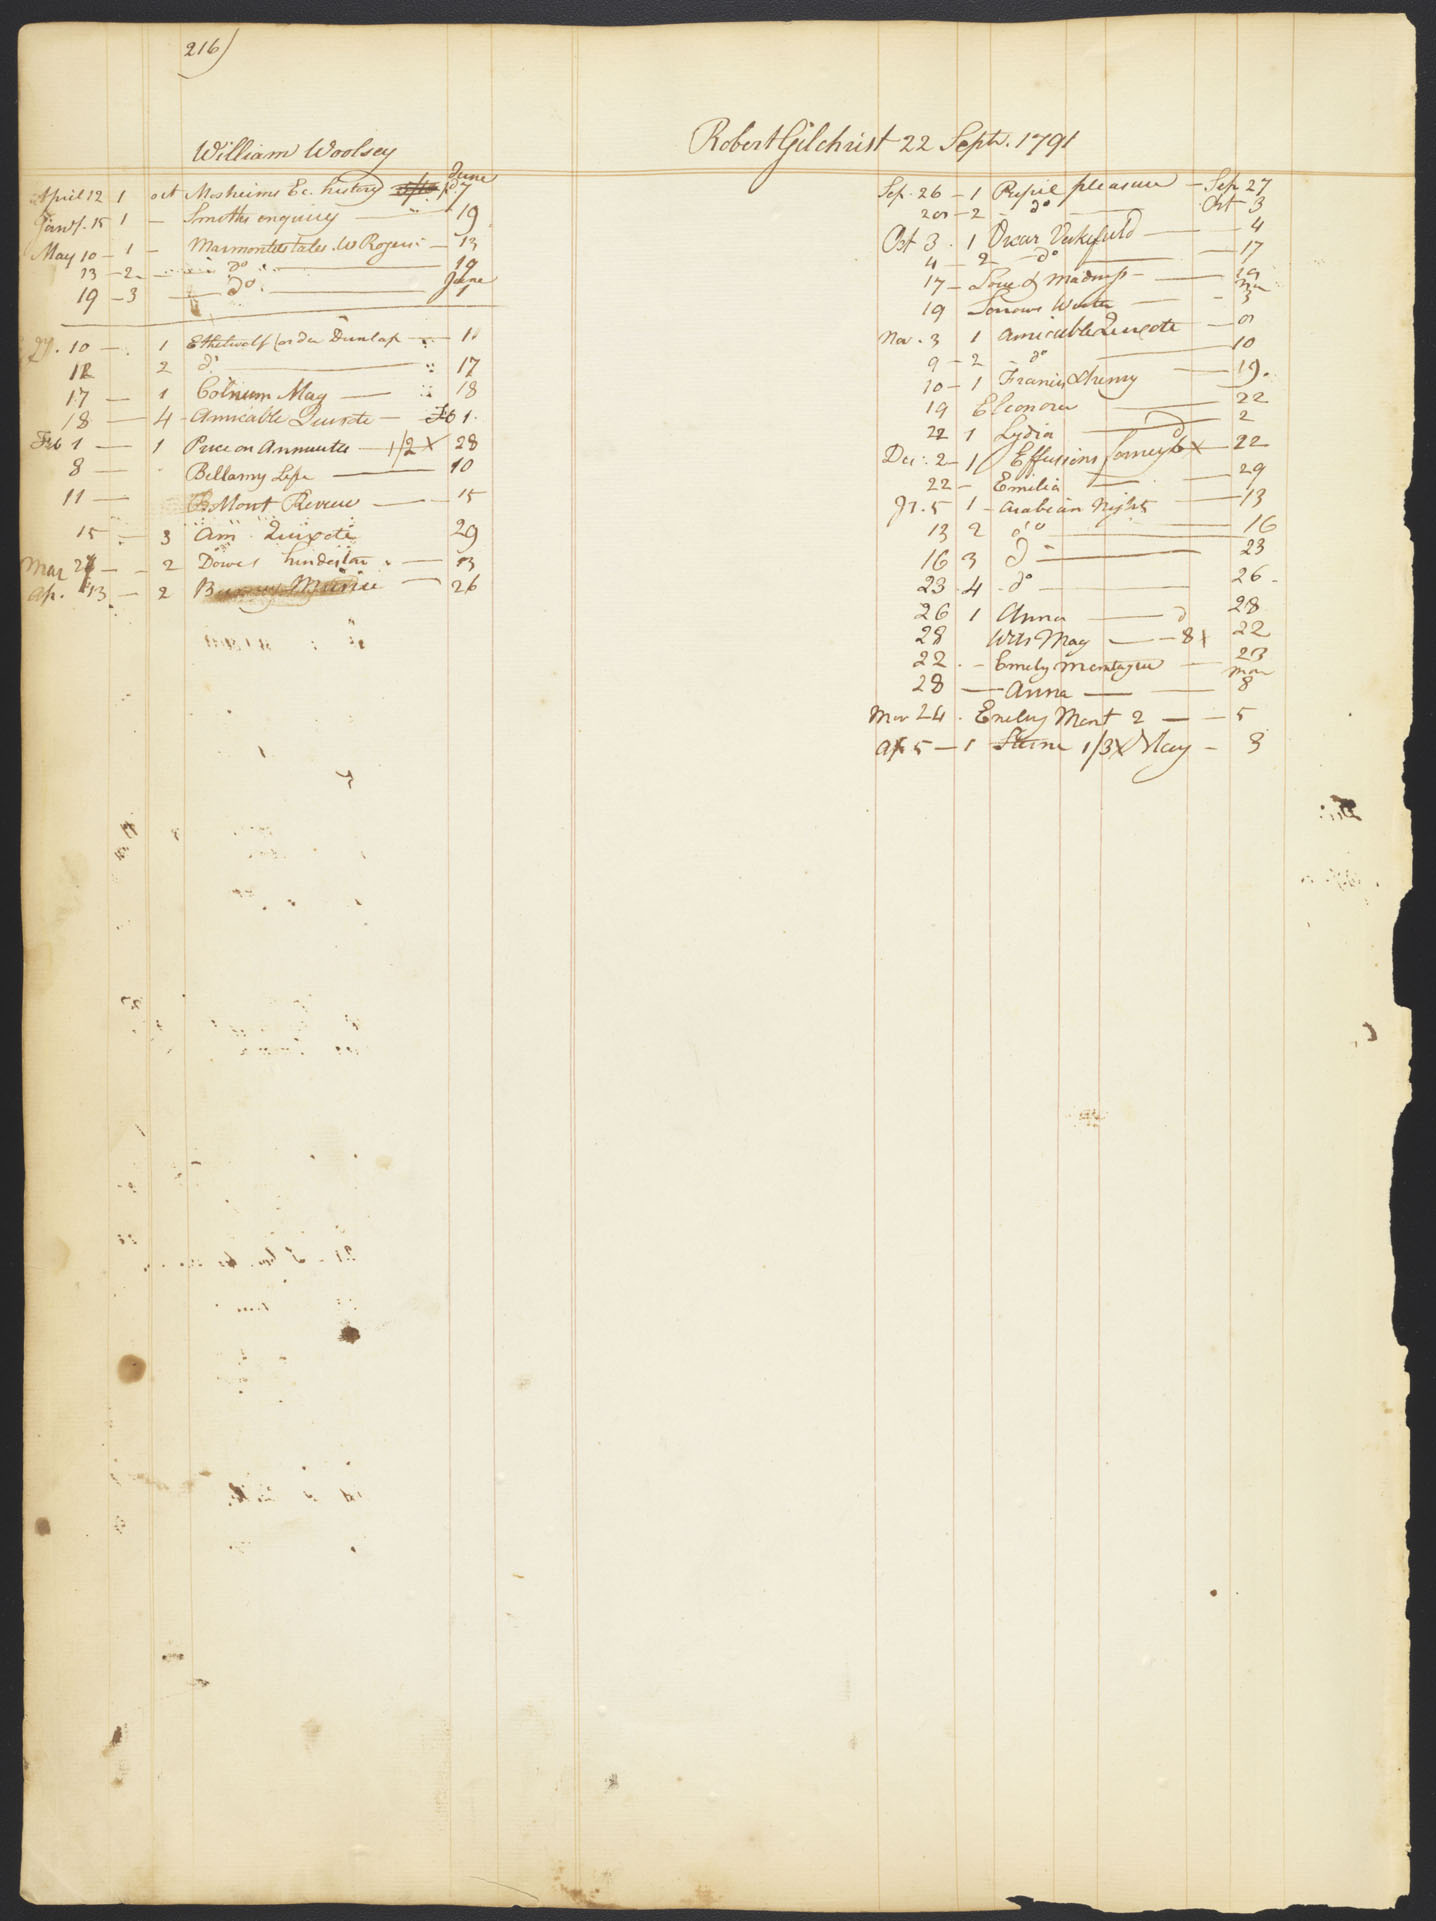 216)
William Woolsey
June
April 12 1 oct Mosheims Ec. history 17
Janry. 15 1 - Smiths enquiry — 19
May 10 - 1 - Marmontels tales. W Rogers - 13
13 - 2 - do — 19
June
19 - 3 — do. — 1
10 — 1 Ethelwolf (order Dunlap — 11
12 2 do — 17
17 — 1 Colnum Mag — 18
18 — 4 - Amicable Quixote — Feb 1.
Feb 1 — 1 Price on Annuities — 1/2 X 28
8 — Bellamy Life — 10
11 — Mont Review — 15
15 — 3 Am Quixote 29
Mar 2 — 2 Dowes hindostan — 13
Ap. 13 — 2 26
Robert Gilchrist 22 Septr. 1791
Sep. 26 - 1 Pupil pleasure - Sep 27
2 - do — Oct 3
Oct 3 . 1 Vicar Wakefield — 4
4 - 2 - do — 17
17 - Love & Madness — 19
Nov
19 Sorrows Werter — 3
Nov. 3 1 Amicable Quixote — 9
9 - 2 - do — 10
10 - 1 Francis & henry — 19.
19 Eleonora — 22
22 1 Lydia — 2
Decr. 2 - 1 Effusions X — 22
22 - Emilia — 29
Jy. 5 1 - Arabian Nights — 13
13 2 do — 16
16 3 do — 23
23 . 4 . do — 26 -
26 1 Anna — 28
28 Wits Mag — 8 X 22
22 . - Emely Montague — 23
Mar
28 — Anna — 8
Mar 24 . Emely Mont 2 — 5
Ap 5 — 1 Sterne 1/3 X May - 3